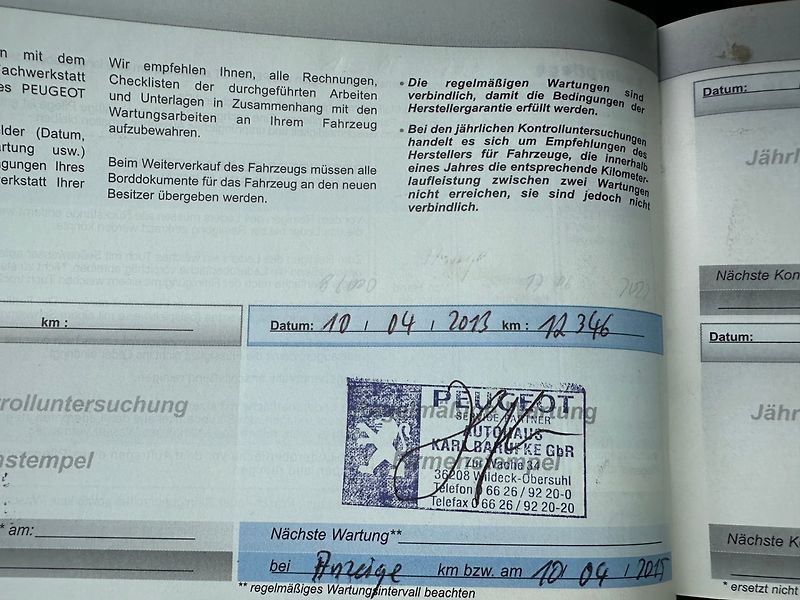 n mit dem
achwerkstatt
es PEUGEOT
lder (Datum,
artung usw.)
ngungen Ihres
erkstatt Ihrer
Wir empfehlen Ihnen, alle Rechnungen,
Checklisten der durchgeführten Arbeiten
und Unterlagen in Zusammenhang mit den
Wartungsarbeiten an Ihrem Fahrzeug
aufzubewahren.
Beim Weiterverkauf des Fahrzeugs müssen alle
Borddokumente für das Fahrzeug an den neuen
Besitzer übergeben werden.
• Die regelmäßigen Wartungen sind
verbindlich, damit die Bedingungen der
Herstellergarantie erfüllt werden.
• Bei den jährlichen Kontrolluntersuchungen
handelt es sich um Empfehlungen des
Herstellers für Fahrzeuge, die innerhalb
eines Jahres die entsprechende Kilometer-
laufleistung zwischen zwei Wartungen
nicht erreichen, sie sind jedoch nicht
verbindlich.
km :
ntrolluntersuchung
nstempel
* am:
Datum: 10 / 04 / 2013 km : 12 346
Regelmäßige Wartung
Firmenstempel
PEUGEOT
SERVICE PARTNER
AUTOHAUS
KARL BARUFKE GbR
Zur Wache 34
36208 Wildeck-Obersuhl
Telefon 0 66 26 / 92 20-0
Telefax 0 66 26 / 92 20-20
Nächste Wartung**
bei Anzeige km bzw. am 10 / 04 / 2015
** regelmäßiges Wartungsintervall beachten
Datum:
Jährl
Nächste Kon
Datum:
Jähr
Nächste K
* ersetzt nicht